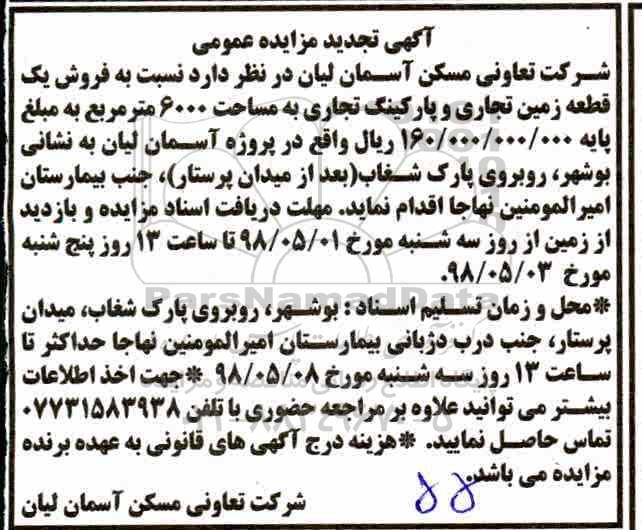 آگهی تجدید مزایده عمومی
شرکت تعاونی مسکن آسمان لیان در نظر دارد نسبت به فروش یک
قطعه زمین تجاری و پارکینگ تجاری به مساحت ۶۰۰۰ مترمربع به مبلغ
پایه ۱۶۰/۰۰۰/۰۰۰/۰۰۰ ریال واقع در پروژه آسمان لیان به نشانی
بوشهر، روبروی پارک شغاب(بعد از میدان پرستار)، جنب بیمارستان
امیرالمومنین نهاجا اقدام نماید. مهلت دریافت اسناد مزایده و بازدید
از زمین از روز سه شنبه مورخ ۹۸/۰۵/۰۱ تا ساعت ۱۳ روز پنج شنبه
مورخ ۹۸/۰۵/۰۳.
ParsNamadData
*محل و زمان تسلیم اسناد : بوشهر، روبروی پارک شغاب، میدان
پرستار، جنب درب دژبانی بیمارستان امیرالمومنین نهاجا حداکثر تا
ساعت ۱۳ روز سه شنبه مورخ ۹۸/۰۵/۰۸ *جهت اخذ اطلاعات
بیشتر می توانید علاوه بر مراجعه حضوری با تلفن ۰۷۷۳۱۵۸۳۹۳۸
تماس حاصل نمایید. *هزینه درج آگهی های قانونی به عهده برنده
مزایده می باشد.
شرکت تعاونی مسکن آسمان لیان